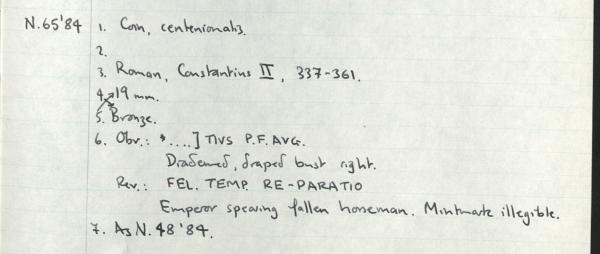 N.65'84 1. Coin, centenionalis.
2.
3. Roman, Constantius II, 337-361.
4. 19 mm.
5. Bronze.
6. Obv.: *....] TIVS P.F. AVG.
Diademed, draped bust right.
Rev.: FEL. TEMP. RE-PARATIO
Emperor spearing fallen horseman. Mintmark illegible.
7. As N. 48'84.